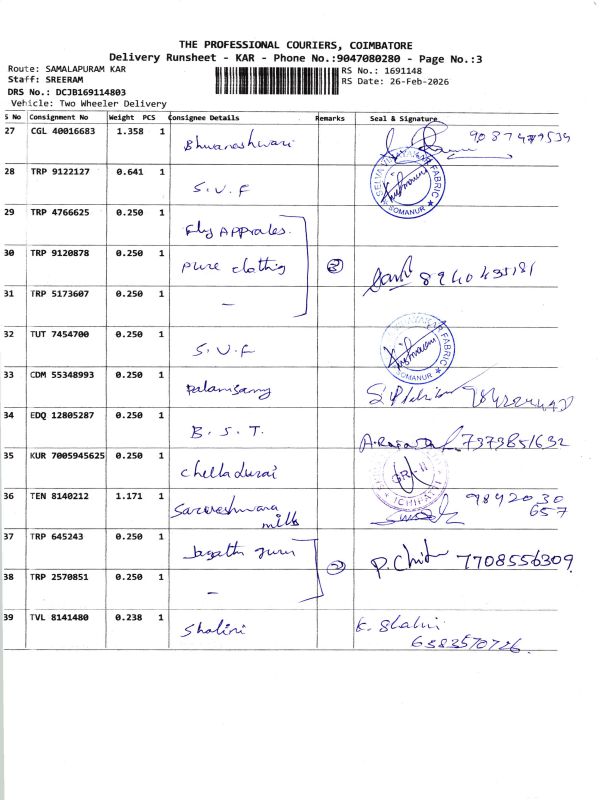 THE PROFESSIONAL COURIERS, COIMBATORE
Delivery Runsheet - KAR - Phone No.:9047080280 - Page No.:3
Route: SAMALAPURAM KAR
RS No.: 1691148
Staff: SREERAM
RS Date: 26-Feb-2026
DRS No.: DCJB169114803
Vehicle: Two Wheeler Delivery
S No Consignment No Weight PCS Consignee Details Remarks Seal & Signature
27 CGL 40016683 1.358 1 Bhuvaneshwari
28 TRP 9122127 0.641 1 S.V.F SELVA VINAYAKAR FABRIC SOMANUR
29 TRP 4766625 0.250 1
30 TRP 9120878 0.250 1 pure clothing 2
31 TRP 5173607 0.250 1 -
32 TUT 7454700 0.250 1 S.V.F FABRIC SOMANUR
33 CDM 55348993 0.250 1 Palamsamy
34 EDQ 12805287 0.250 1 B.S.T. 7373851632
35 KUR 7005945625 0.250 1 Chelladurai
36 TEN 8140212 1.171 1 mills 9842030 657
37 TRP 645243 0.250 1 2 P. 7708556309
38 TRP 2570851 0.250 1 -
39 TVL 8141480 0.238 1 Shalini K. Shalini
6383570726